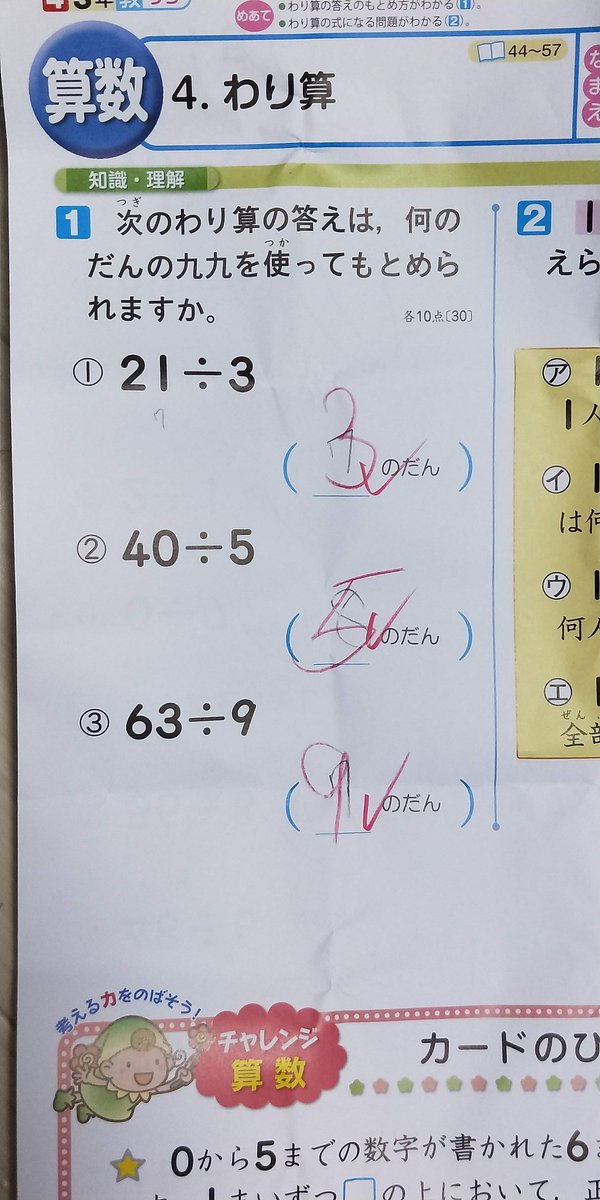 3年 教
めあて
●わり算の答えのもとめ方がわかる(1)。
●わり算の式になる問題がわかる(2)。
44〜57
算数 4. わり算
なまえ
知識・理解
1 次のわり算の答えは，何の
つぎ
だんの九九を使ってもとめら
つか
れますか。
各10点〔30〕
① 21÷3
7
( 3 のだん )
② 40÷5
( 5 のだん )
③ 63÷9
( 9 のだん )
2 1
えら
ア
1人
イ
は何
ウ
何人
エ
ぜん
全部
考える力をのばそう！
チャレンジ
算数
カードのひ
0から5までの数字が書かれた6
1まいずつ□の上において，正